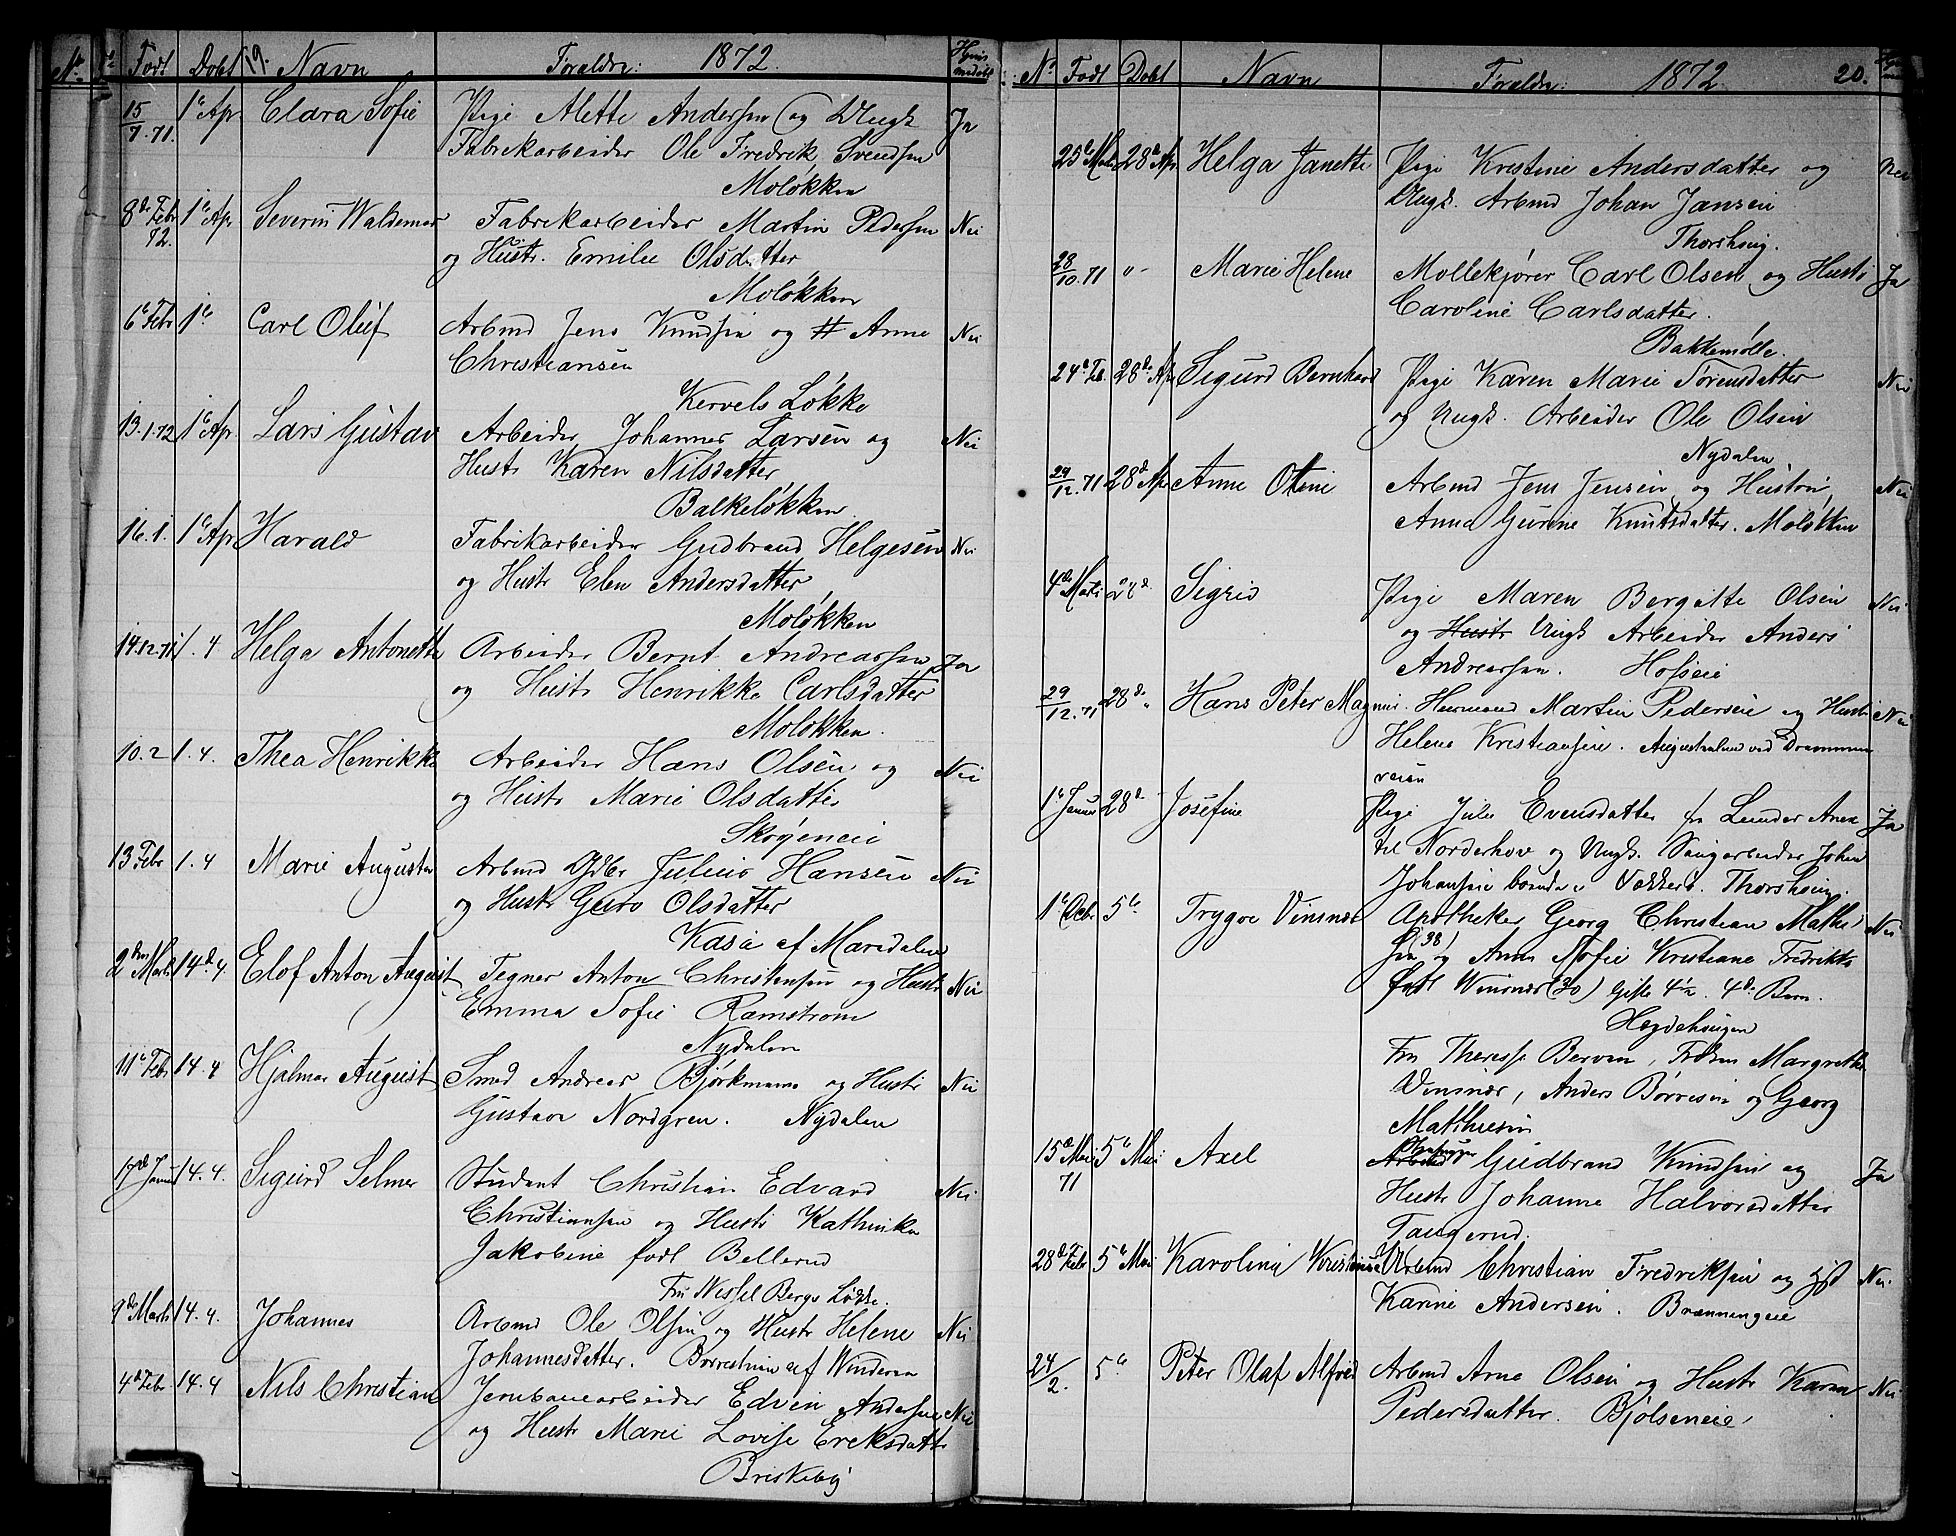 Født Døbt 19. Navn Forældre: 1872.
15/7.71. 1e Ap. Clara Sofie Pige Alette Andersen og Ungk. Ja
Fabrikarbeider Ole Fredrik Svendsen
Moløkken
8de Febr 72. 1e Ap. Severin Waldemar Fabrikarbeider Martin Pedersen Nei
og Hustr. Emilie Olsdatter
Moløkken
6e Febr 1e Carl Oluf Arbmd Jens Knudsen og H Anne Nei
Christiansen
Kervels Løkke
13.1.72 1e Ap. Lars Gustav Arbeider Johannes Larsen og Nei
Hustr Karen Nilsdatter
Balkeløkken
16.1. 1e Ap Harald Fabrikarbeider Gudbrand Helgesen Nei
og Hustr Elen Andersdatter
Moløkken
14.12.71 1.4 Helga Antonette Arbeider Bernt Andreassen Ja
og Hustr Henrikke Carlsdatter
Moløkken.
10.2 1.4. Thea Henrikke Arbeider Hans Olsen og Nei
og Hustr Marie Olsdatter
Skøieneie
13 Febr 1.4 Marie Augusta Arbmd Julius Hansen Nei
og Hustr Guro Olsdatter
Kasa af Maredalen
2den Marts 14d.4. Elof Anton August Tegner Anton Christensen og Hustr Nei
Emma Sofie Ramstrøm
Nydalen
11e Febr 14.4 Hjalmar August Smed Andreas Bjørkmann og Hustr Nei
Gustava Nordgren. Nydalen
17d Januar 14.4. Sigurd Selmer Student Christian Edvard Nei
Christiansen og Hustr Kathinka
Jakobine født Bellerud
Fru Wessel Bergs Løkke.
9de Marts 14.4. Johannes Arbmd Ole Olsen og Hustr Helene Nei
Johannesdatter. Børrestuen af Winderen
4d Febr 14.4 Nils Christian Jernbanearbeider Edvin Andersen Nei
og Hustr Marie Lovise Ereksdatt
Briskeby
No Født Døbt Navn Forældre: 1872. 20.
25e Marts 28de Apr Helga Janette Pige Kristine Andersdatter og Nei
Ungk. Arbmd Johan Jansen
Thorshoug.
28/10.71 "- Marie Helene Møllekjører Carl Olsen og Hustr Ja
Caroline Carlsdatter.
Bakkemølle.
24de Fe. 28de Apr Sigurd Bernhard Pige Karen Marie Sørensdatter Nei
og Ungk. Arbeider Ole Olsen
Nydalen
29/12.71 28d Apr Anne Oline Arbmd Jens Jensen og Hustru Nei
Anne Gurine Knutsdatter. Moløkken
4de Marts 28d. Sigrid Pige Maren Bergitte Olsen Nei
og Hustr Ungk Arbeider Anders
Andreassen. Hofseie
29/12.71 28de " Hans Peter Magnus. Huusmand Martin Pedersen og Hustr Nei
Helene Kristiansen. Augustralunn ved Drammens
veien
1e Januar 28d Josefine Pige Julie Evensdatter fra Lunder Anex Ja
til Norderhov og Ungk. Saugarbeider Johan
Johansen boende i Vækkerø. Thorshoug.
1e Octbr 5te Trygve Vinsnæs Apotheker Georg Christian Mathie Nei
sen (38) og Anna Sofie Kristiane Fredrikke
født Winsnæs (30) Gifte 4 1/2. 4de Barn.
Hægdehougen
Fru Therese Berven, Frøken Margrethe
Vinsnæs, Anders Børresen og Georg
Mathiesen
15de Mai 71 5te Mai Axel Arbmd Gudbrand Knudsen og Ja
Hustr Johanne Halvorsdatter
Taugerud.
28de Febr 5te Mai Karoline Kristiane Arbmd Christian Fredriksen og Nei
Karine Andersen. Brænnengeie
24/2. 5te Peter Olaf Alfred Arbmd Arne Olsen og Hustr Karen Nei
Pedersdatter. Bjølseneie.